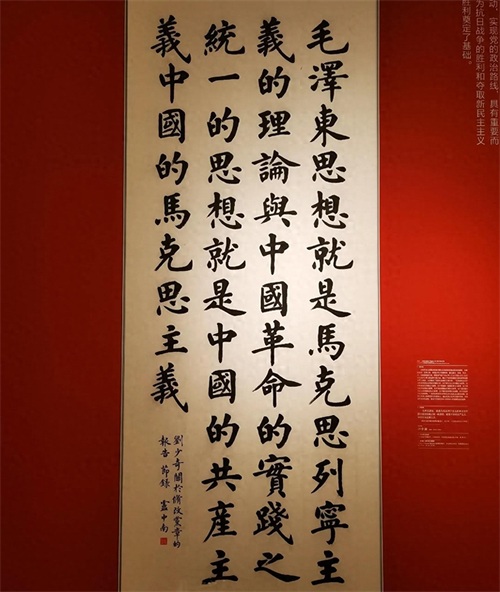 动，实现党的政治路线，具有重要而
为抗日战争的胜利和夺取新民主主义
胜利奠定了基础。
毛澤東思想就是馬克思列寧主
義的理論與中國革命的實踐之
統一的思想就是中國的共產主
義中國的馬克思主義
劉少奇關於修改黨章的
報告 節錄 盧中南